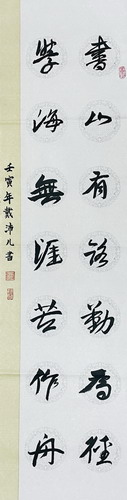 書山有路勤為徑
學海無涯苦作舟
壬寅年戴沛凡書